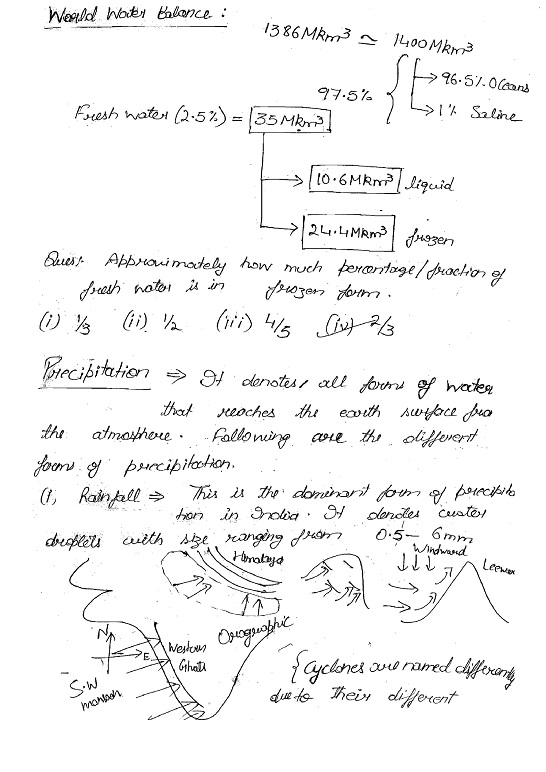 World Water Balance :
1386 Mkm³ ≃ 1400 Mkm³
97.5%
→ 96.5% Oceans
→ 1% Saline
Fresh water (2.5%) = 35 Mkm³
→ 10.6 Mkm³ liquid
→ 24.4 Mkm³ frozen
Ques:- Approximately how much percentage/fraction of
fresh water is in frozen form.
(i) 1/3 (ii) 1/2 (iii) 4/5 (iv) 2/3
Precipitation ⇒ It denotes all forms of water
that reaches the earth surface fro
the atmosphere. Following are the different
form of precipitation.
(1, Rainfall ⇒ This is the dominant form of precipita
tion in India. It denotes water
droplets with size ranging from 0.5 - 6mm
Himalaya
Windward
Leewar
Orographic
N
E
Western
Ghats
S.W
monsoon
{ Cyclones are named differently
due to their different